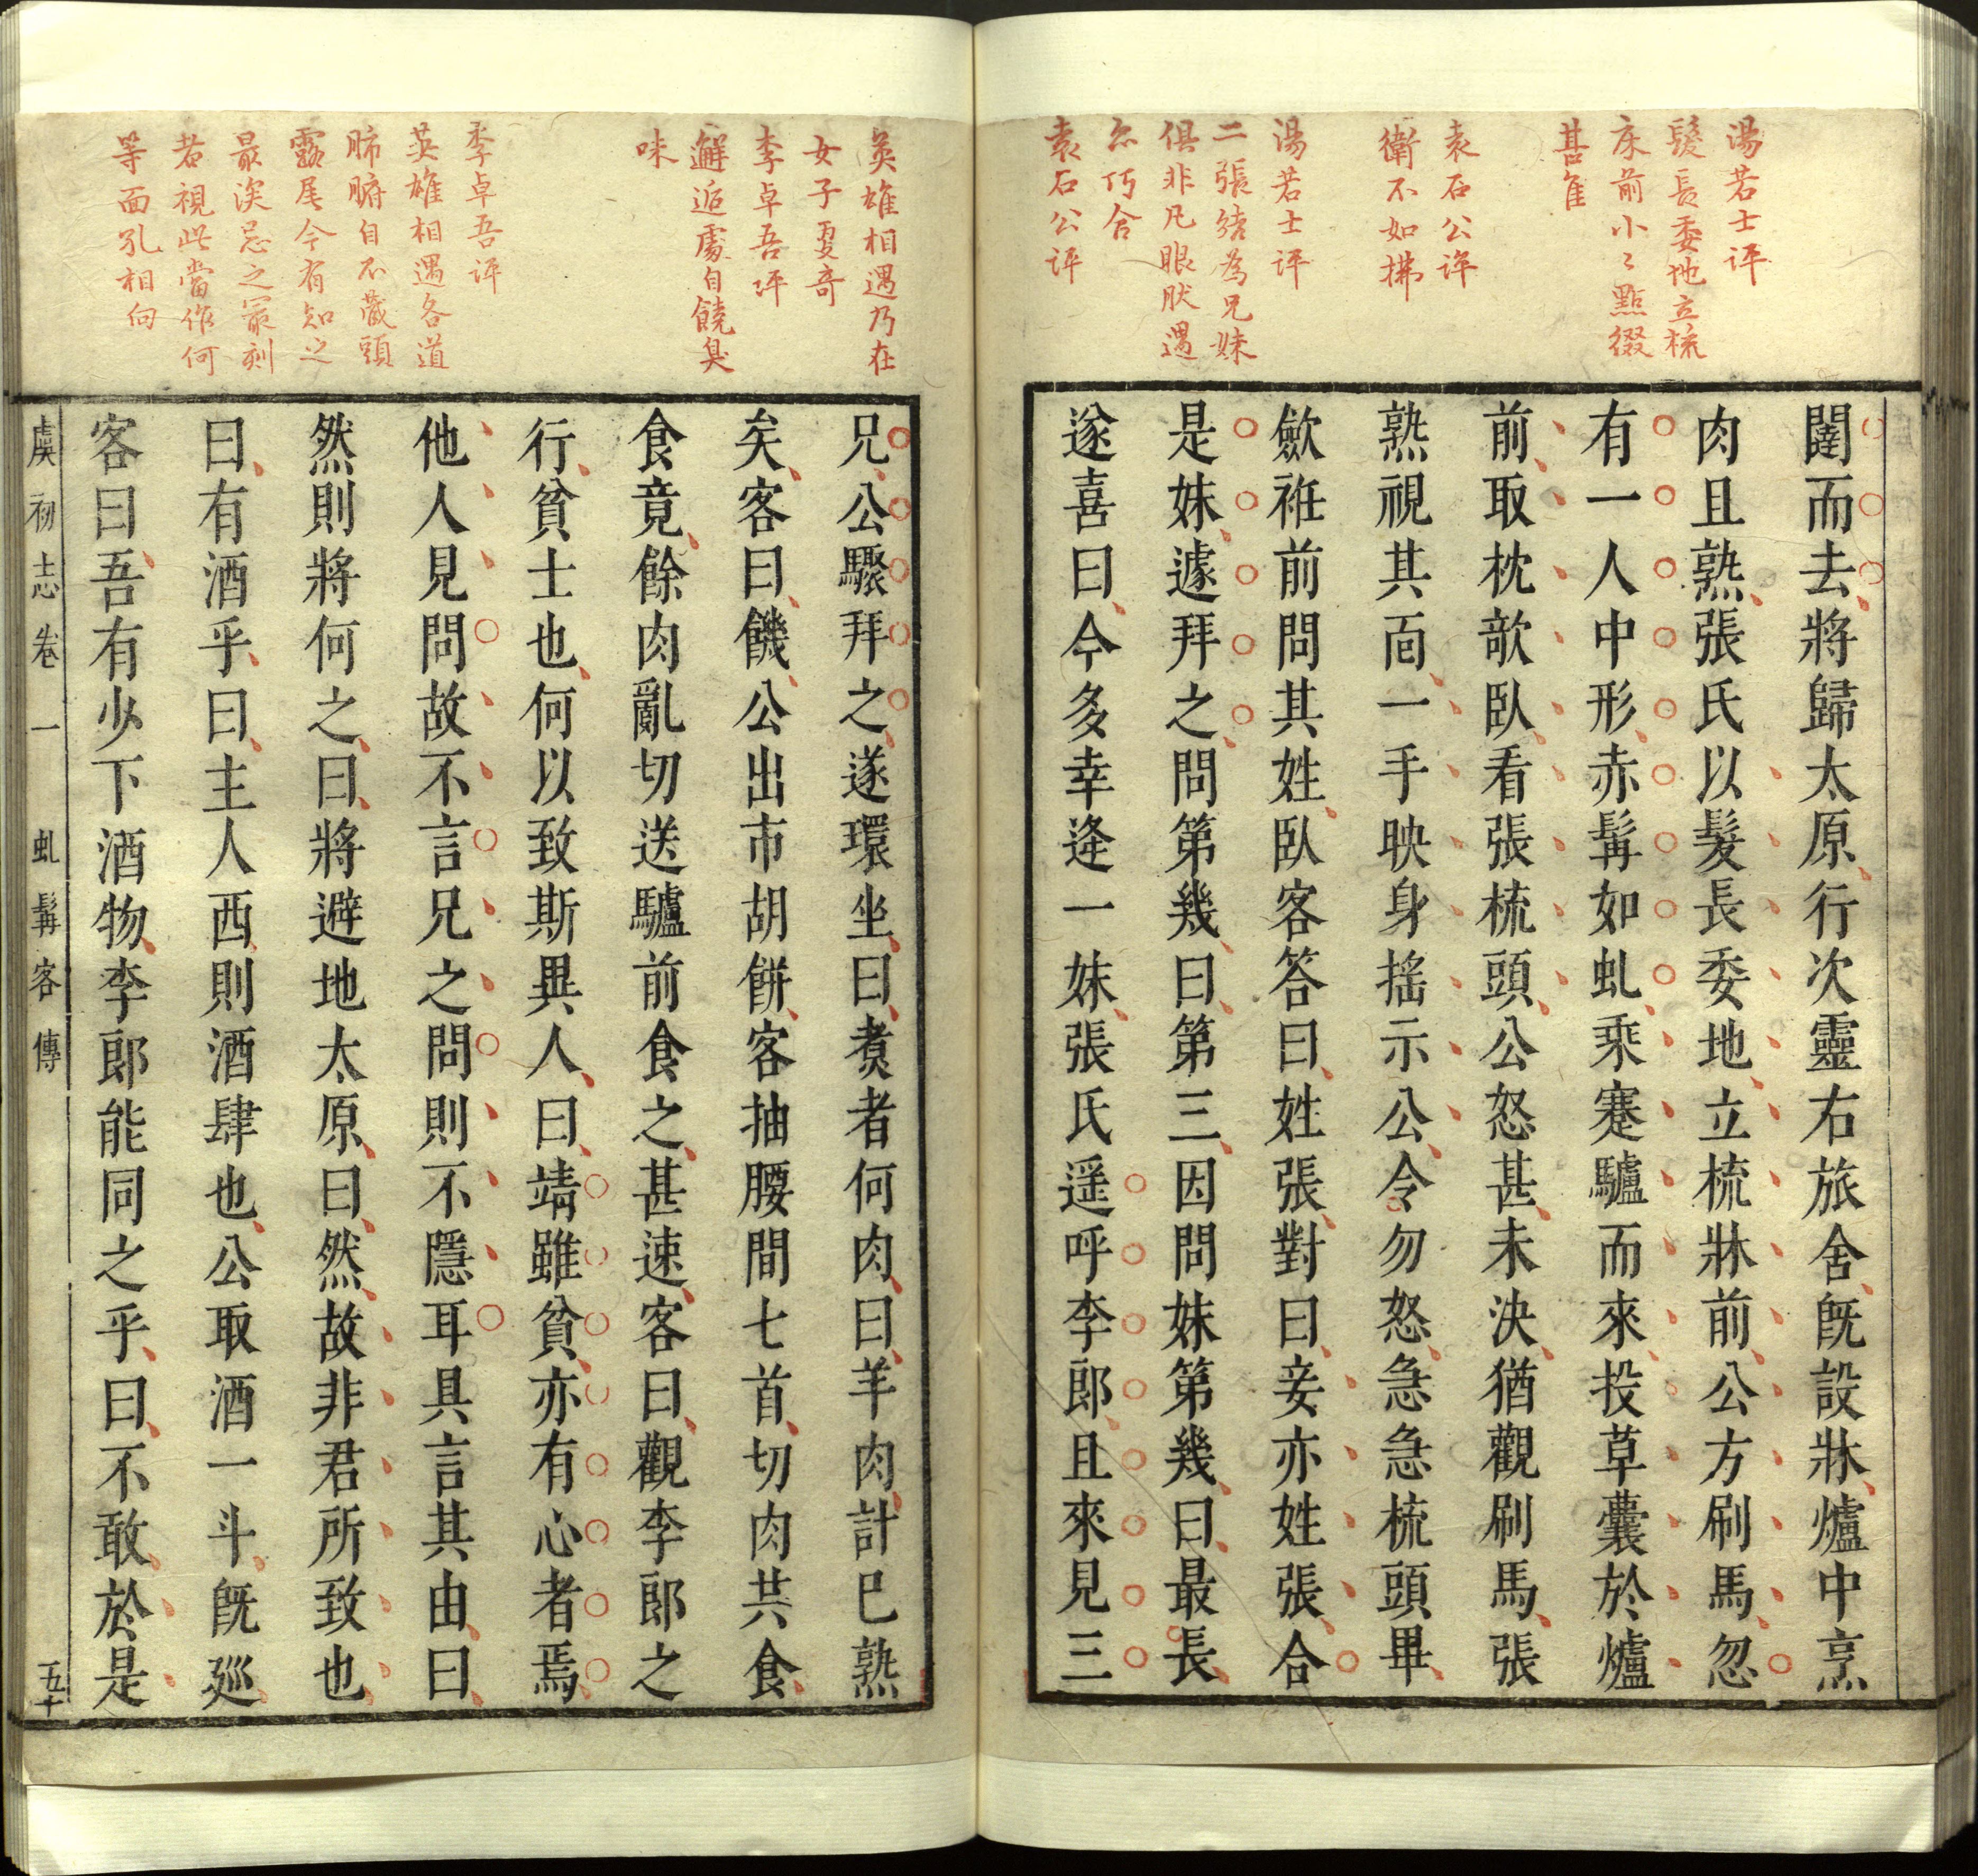 湯若士評
髮長委地立梳
床前小〻點綴
甚隹
袁石公評
衛不如拂
湯若士評
二張結為兄妹
俱非凡眼肰遇
亦巧合
袁石公評
闥而去將歸太原行次靈右旅舍旣設牀爐中烹
肉且熟張氏以髮長委地立梳牀前公方刷馬忽
有一人中形赤髯如虬乘蹇驢而來投草囊於爐
前取枕欹臥看張梳頭公怒甚未決猶觀刷馬張
熟視其面一手映身搖示公令勿怒急急梳頭畢
歛袵前問其姓臥客答曰姓張對曰妾亦姓張合
是妹遽拜之問第幾曰第三因問妹第幾曰最長
遂喜曰今多幸逢一妹張氏遥呼李郎且來見三
英雄相遇乃在
女子更奇
李卓吾評
邂逅處自饒臭
味
李卓吾評
英雄相遇各道
肺腑自不藏頭
露尾今有知之
最深忌之最刻
者視此當作何
等面孔相向
兄公驟拜之遂環坐曰煑者何肉曰羊肉計已熟
矣客曰饑公出市胡餅客抽腰間七首切肉共食
食竟餘肉亂切送驢前食之甚速客曰觀李郎之
行貧士也何以致斯異人曰靖雖貧亦有心者焉
他人見問故不言兄之問則不隱耳具言其由曰
然則將何之曰將避地太原曰然故非君所致也
曰有酒乎曰主人西則酒肆也公取酒一斗旣廵
客曰吾有少下酒物李郎能同之乎曰不敢於是
虞初志卷一 虬髯客傳 五十